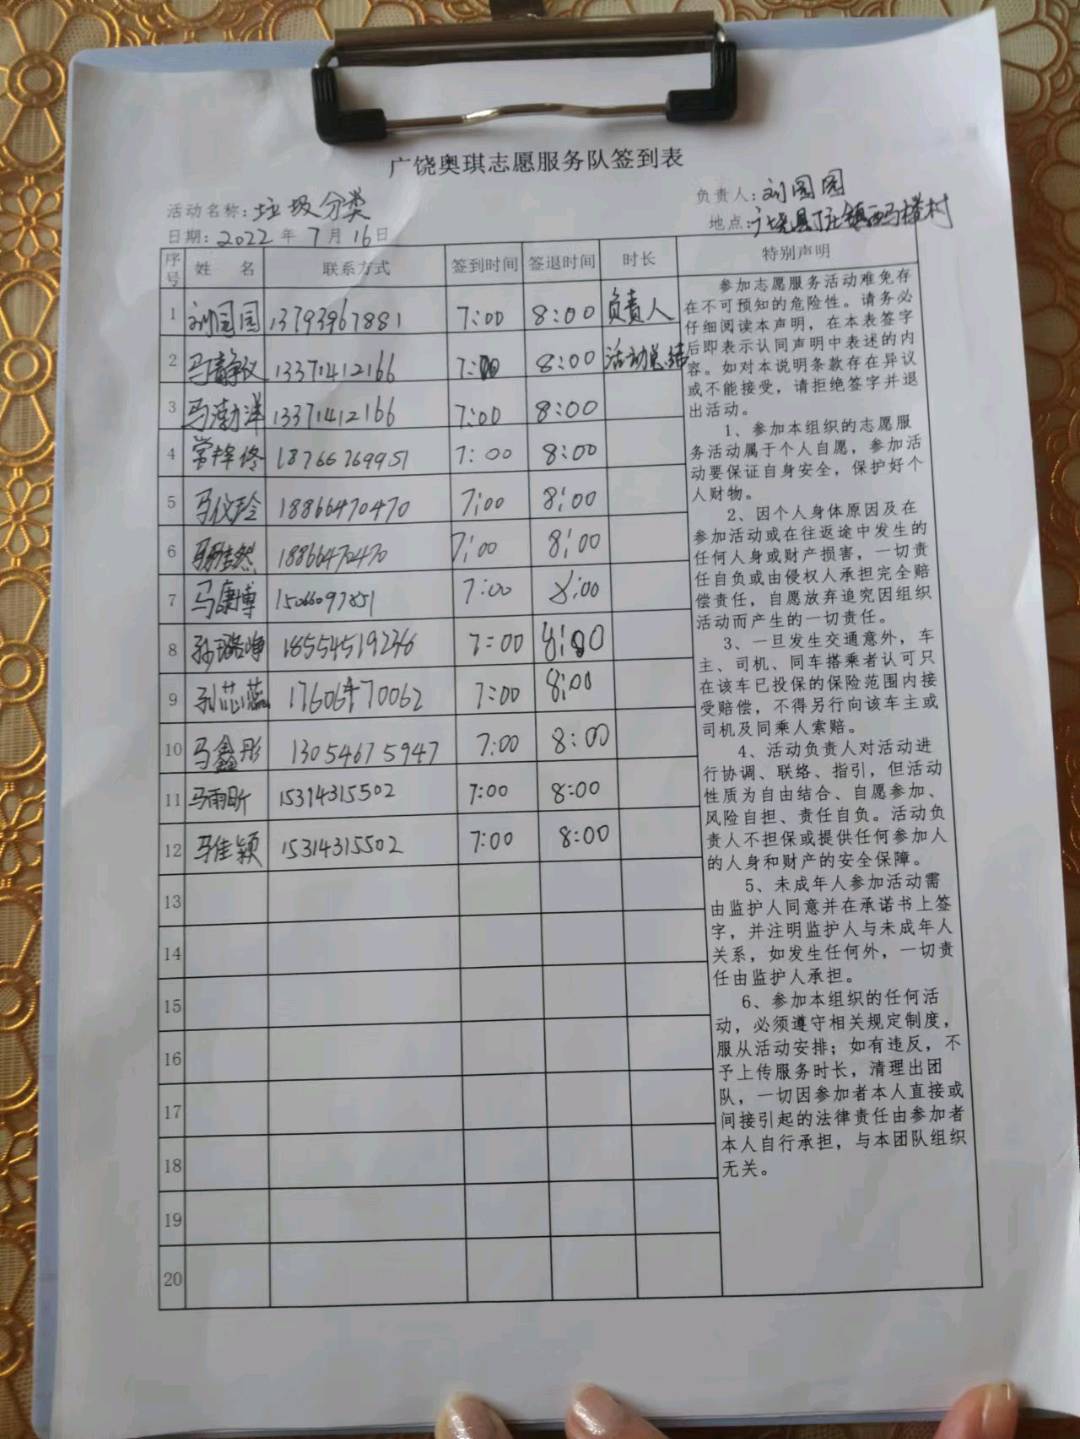 广饶奥琪志愿服务队签到表
活动名称：垃圾分类
负责人：刘园园
日期：2022年7月16日
地点：广饶县 镇西马楼村
序号 姓 名 联系方式 签到时间 签退时间 时长 特别声明
1 刘园园 13793967881 7:00 8:00 负责人
2 马静仪 13371412166 7:00 8:00 活动总结
3 马渤洋 13371412166 7:00 8:00
4 常 18766769951 7:00 8:00
5 马仪玲 18866470470 7:00 8:00
6 18866470470 7:00 8:00
7 马康博 15066097851 7:00 8:00
8 孙璐 18554519246 7:00 8:00
9 孙芯蕊 17606470062 7:00 8:00
10 马鑫彤 13054675947 7:00 8:00
11 马雨昕 15314315502 7:00 8:00
12 马佳颖 15314315502 7:00 8:00
13
14
15
16
17
18
19
20
参加志愿服务活动难免存
在不可预知的危险性。请务必
仔细阅读本声明，在本表签字
后即表示认同声明中表述的内
容。如对本说明条款存在异议
或不能接受，请拒绝签字并退
出活动。
1、参加本组织的志愿服
务活动属于个人自愿，参加活
动要保证自身安全，保护好个
人财物。
2、因个人身体原因及在
参加活动或在往返途中发生的
任何人身或财产损害，一切责
任自负或由侵权人承担完全赔
偿责任，自愿放弃追究因组织
活动而产生的一切责任。
3、一旦发生交通意外，车
主、司机、同车搭乘者认可只
在该车已投保的保险范围内接
受赔偿，不得另行向该车主或
司机及同乘人索赔。
4、活动负责人对活动进
行协调、联络、指引，但活动
性质为自由结合、自愿参加、
风险自担、责任自负。活动负
责人不担保或提供任何参加人
的人身和财产的安全保障。
5、未成年人参加活动需
由监护人同意并在承诺书上签
字，并注明监护人与未成年人
关系，如发生任何外，一切责
任由监护人承担。
6、参加本组织的任何活
动，必须遵守相关规定制度，
服从活动安排；如有违反，不
予上传服务时长，清理出团
队，一切因参加者本人直接或
间接引起的法律责任由参加者
本人自行承担，与本团队组织
无关。